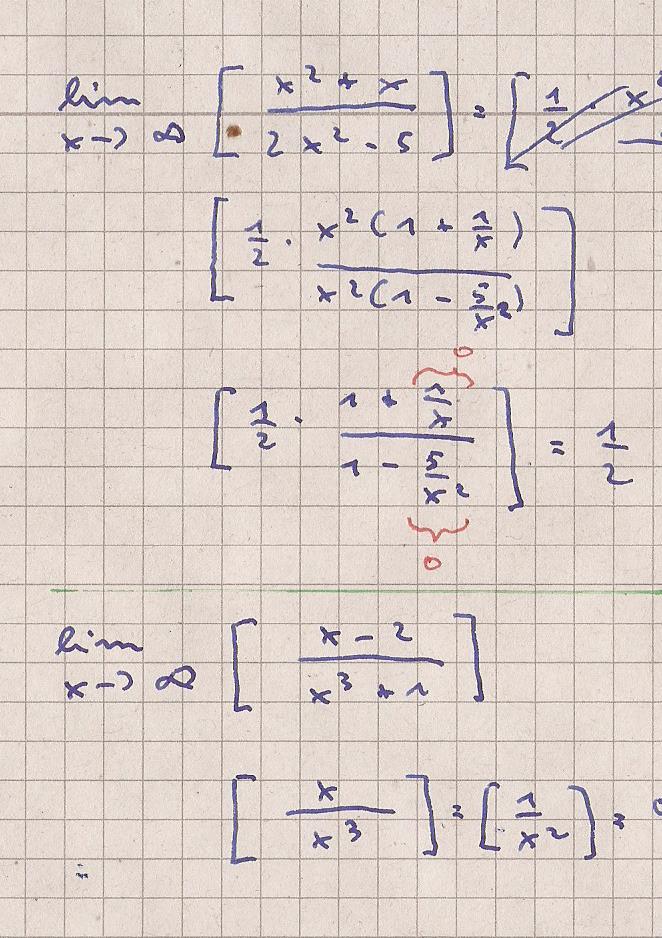 lim x→∞ [ (x² + x) / (2x² - 5) ] = [ 1/2 · x
[ 1/2 · x²(1 + 1/x) / x²(1 - 5/x²) ]
0
[ 1/2 · (1 + 1/x) / (1 - 5/x²) ] = 1/2
0
lim x→∞ [ (x - 2) / (x³ + 1) ]
[ x / x³ ] = [ 1/x² ] =